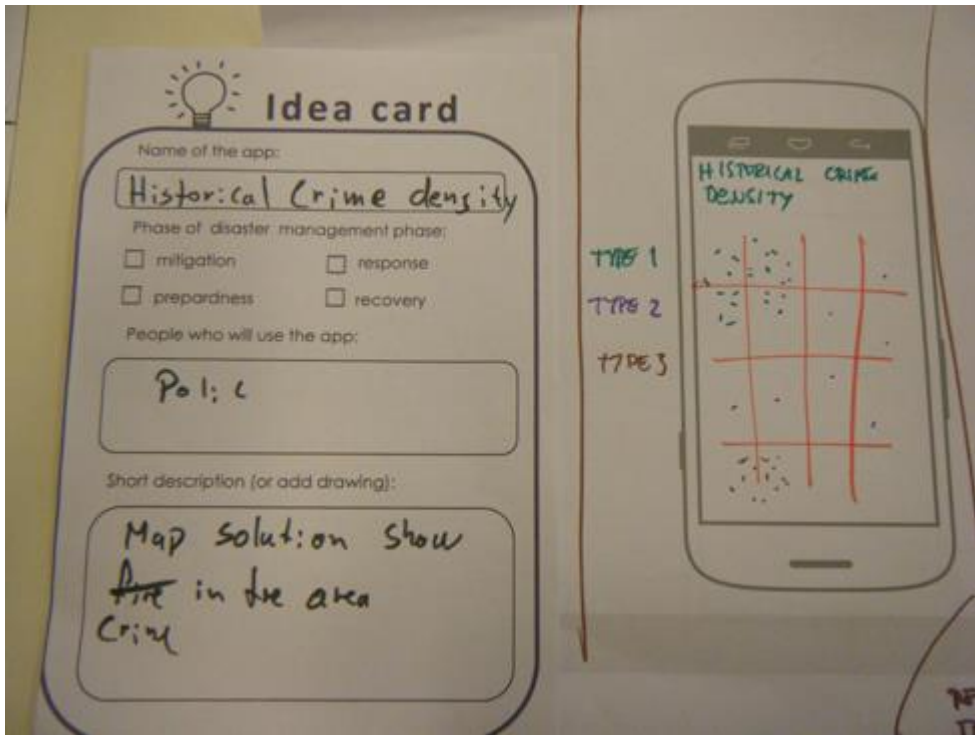 Idea card
Name of the app:
Historical Crime density
Phase of disaster management phase:
mitigation response
prepardness recovery
People who will use the app:
Polic
Short description (or add drawing):
Map solution show
fire in tre area
Crime
HISTORICAL CRIME
DENSITY
TYPE 1
TYPE 2
TYPE 3